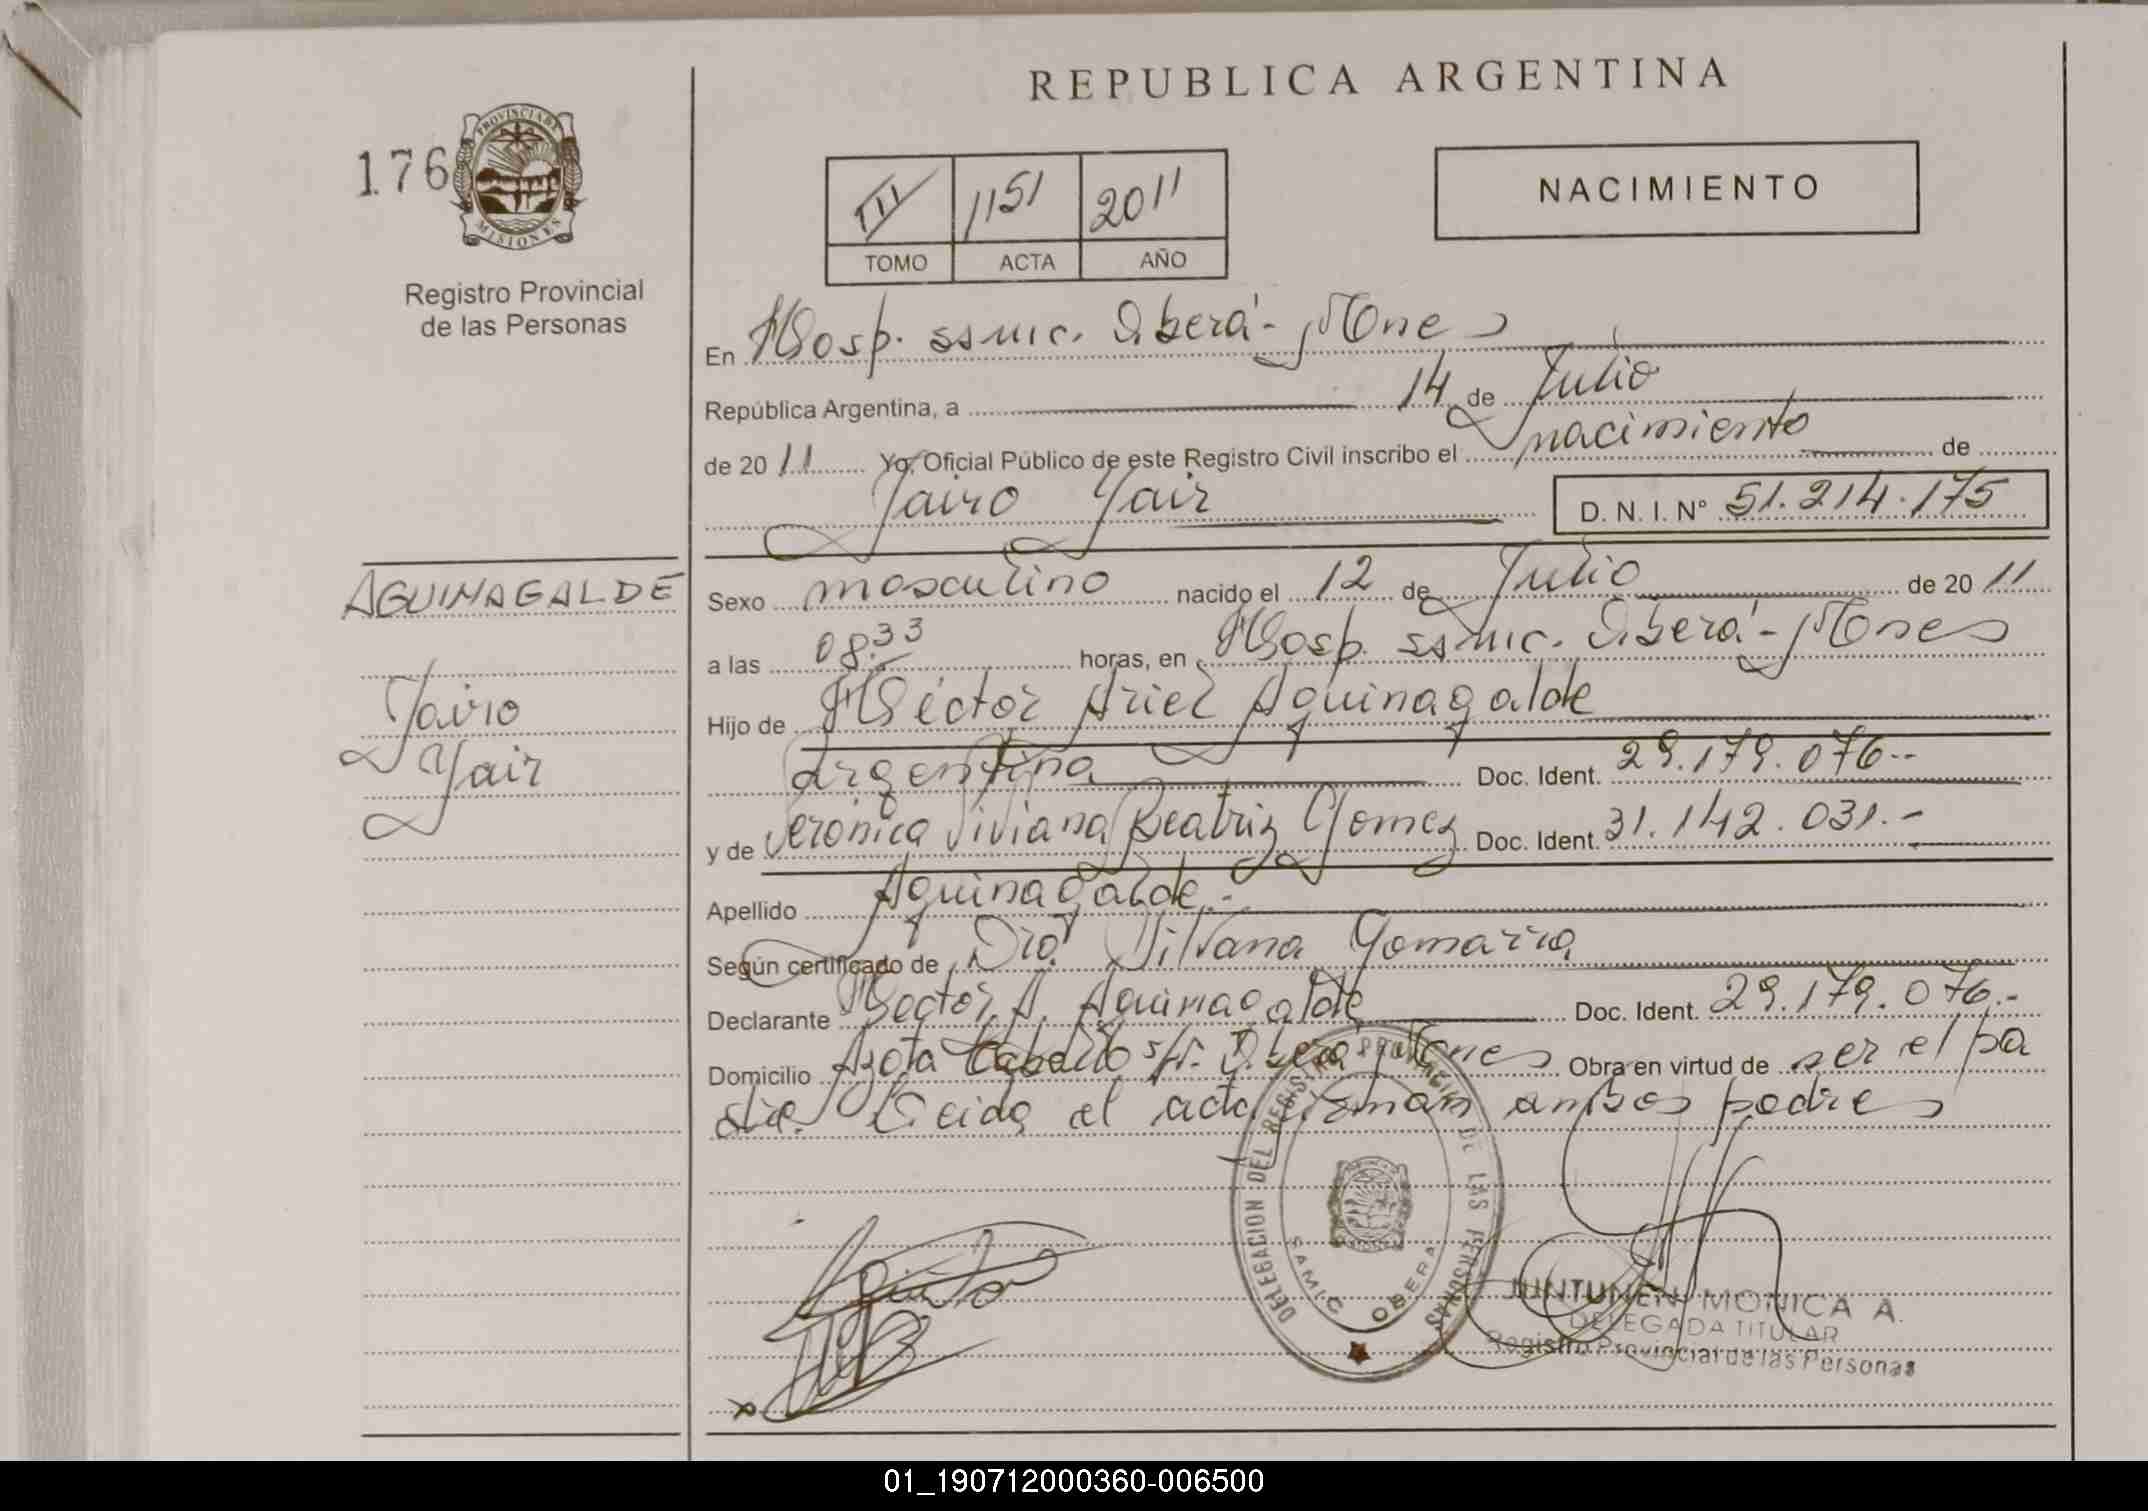 REPUBLICA ARGENTINA
176
PROVINCIA DE
MISIONES
Registro Provincial
de las Personas
III 1151 2011
TOMO ACTA AÑO
NACIMIENTO
En Hosp. ssmic. Oberá - Mnes
República Argentina, a 14 de Julio
de 20 11 Yo, Oficial Público de este Registro Civil inscribo el nacimiento de
Jairo Yair D. N. I. N° 51.214.175
AGUINAGALDE
Jairo
Yair
Sexo masculino nacido el 12 de Julio de 20 11
a las 08.33 horas, en Hosp. ssmic. Oberá - Mnes
Hijo de Héctor Ariel Aguinagalde
argentina Doc. Ident. 29.179.076.-
y de Veronica Viviana Beatriz Gomez Doc. Ident. 31.142.031.-
Apellido Aguinagalde.-
Según certificado de Dra. Silvana Gomarra
Declarante Hector A. Aguinagalde Doc. Ident. 29.179.076.-
Domicilio Azota Caballo s/n. Oberá Mnes Obra en virtud de ser el pa
dre. Leida el acta firman ambos padres
DELEGACION DEL REGISTRO PROVINCIAL DE LAS PERSONAS
SAMIC OBERA
JUNTUNEN MONICA A.
DELEGADA TITULAR
Registro Provincial de las Personas
01_190712000360-006500